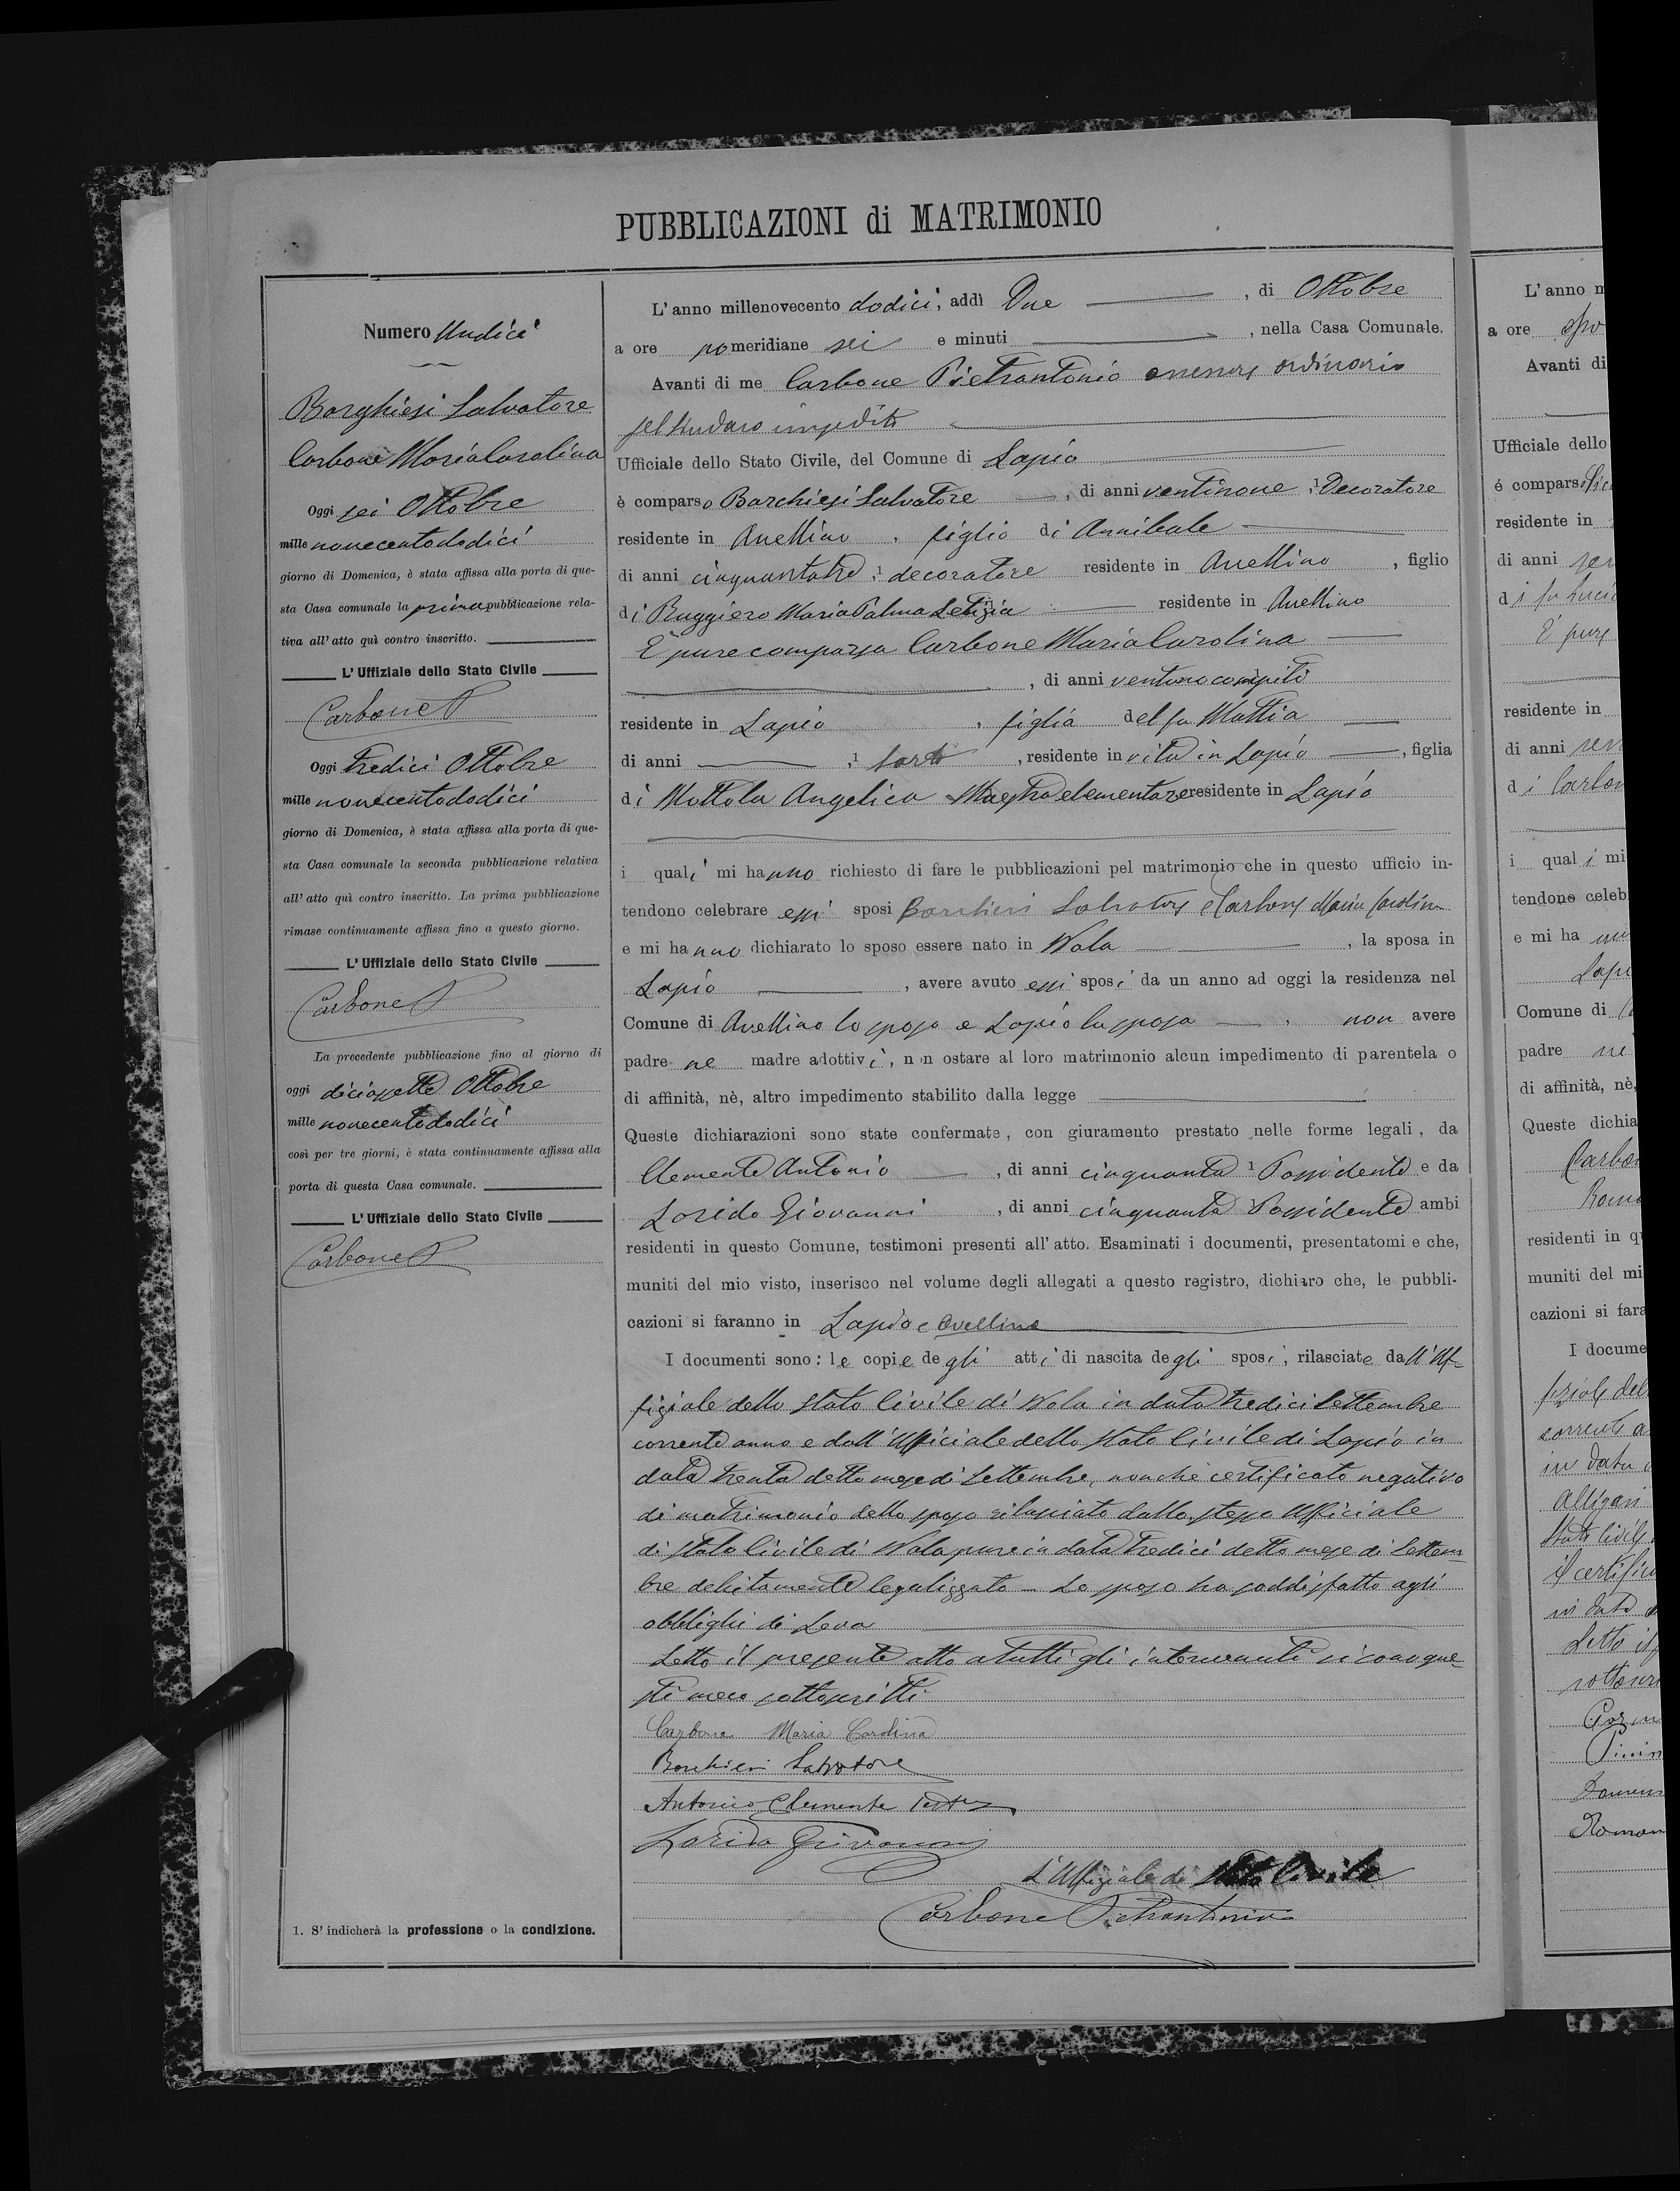 PUBBLICAZIONI di MATRIMONIO
Numero Undici
Borghiesi Salvatore
Carbone Maria Carolina
Oggi sei Ottobre
mille novecentododici
giorno di Domenica, è stata affissa alla porta di que-
sta Casa comunale la prima pubblicazione rela-
tiva all' atto quì contro inscritto.
L' Uffiziale dello Stato Civile
Carbone P
Oggi tredici Ottobre
mille novecentododici
giorno di Domenica, è stata affissa alla porta di que-
sta Casa comunale la seconda pubblicazione relativa
all' atto quì contro inscritto. La prima pubblicazione
rimase continuamente affissa fino a questo giorno.
L' Uffiziale dello Stato Civile
Carbone P
La precedente pubblicazione fino al giorno di
oggi diciassette Ottobre
mille novecentododici
così per tre giorni, è stata continuamente affissa alla
porta di questa Casa comunale.
L' Uffiziale dello Stato Civile
Carbone P
1. S' indicherà la professione o la condizione.
L' anno millenovecento dodici, addì Due, di Ottobre
a ore pomeridiane sei e minuti, nella Casa Comunale.
Avanti di me Carbone Pietrantonio assessore ordinario
pel Sindaco impedito
Ufficiale dello Stato Civile, del Comune di Lapio
è comparso Barchiesi Salvatore, di anni ventinove, 1 Decoratore
residente in Avellino, figlio di Annibale
di anni cinquantatre, 1 decoratore residente in Avellino, figlio
di Ruggiero Maria Palma Letizia residente in Avellino
È pure comparsa Carbone Maria Carolina
, di anni ventuno compiti
residente in Lapio, figlia del fu Mattia
di anni, 1 sarto, residente in vita in Lapio, figlia
di Mottola Angelica Maestra elementare residente in Lapio
i quali mi hanno richiesto di fare le pubblicazioni pel matrimonio che in questo ufficio in-
tendono celebrare essi sposi Barchiesi Salvatore e Carbone Maria Carolina
e mi hanno dichiarato lo sposo essere nato in Nola, la sposa in
Lapio, avere avuto essi sposi da un anno ad oggi la residenza nel
Comune di Avellino lo sposo e Lapio la sposa, non avere
padre ne madre adottivi, non ostare al loro matrimonio alcun impedimento di parentela o
di affinità, nè, altro impedimento stabilito dalla legge
Queste dichiarazioni sono state confermate, con giuramento prestato nelle forme legali, da
Clemente Antonio, di anni cinquanta 1 Possidente e da
Lorido Giovanni, di anni cinquanta 1 Possidente ambi
residenti in questo Comune, testimoni presenti all' atto. Esaminati i documenti, presentatomi e che,
muniti del mio visto, inserisco nel volume degli allegati a questo registro, dichiaro che, le pubbli-
cazioni si faranno in Lapio e Avellino
I documenti sono: le copie degli atti di nascita degli sposi, rilasciate dall'Uf-
fiziale dello Stato Civile di Nola in data tredici Settembre
corrente anno e dall'Ufficiale dello Stato Civile di Lapio in
data trenta detto mese di Settembre, nonchè certificato negativo
di matrimonio dello sposo rilasciato dallo stesso Ufficiale
di Stato Civile di Nola pure in data tredici detto mese di Settem-
bre debitamente legalizzato - Lo sposo ha soddisfatto agli
obblighi di Leva
Letto il presente atto a tutti gli intervenuti si sono que-
sti meco sottoscritti
Carbone Maria Carolina
Barchiesi Salvatore
Antonio Clemente
Lorido Giovanni
L'Uffiziale di Stato Civile
Carbone Pietrantonio
L' anno
a ore
Avanti di
Ufficiale dello
é compars
residente in
di anni
di fu
È pure
residente in
di anni
di Carbon
i quali mi
tendono celeb
e mi ha
Lapi
Comune di
padre ne
di affinità, nè,
Queste dichia
Carbon
residenti in q
muniti del mi
cazioni si fara
I docume
in data
Stato Civile
il certifica
in data
Letto il